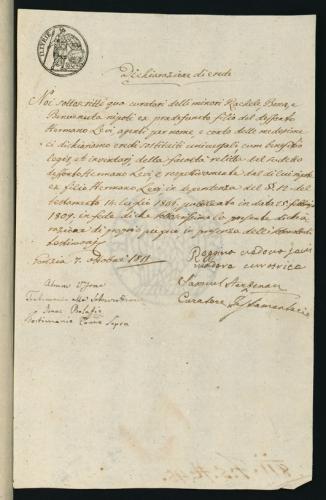 Dichiarazione di erede
Noi sottoscritti qua curatori delli minori Rachele, Bona, e
Benvenuta nipoti ex predefunto filio del defonto
Hermano Levi, agenti per nome, e conto delle medesime
ci dichiariamo eredi sostituiti universali con benefitio
legis, et inventarj della facoltà relitta dal sudetto
defonto Hermano Levi, e respettivamente dal di lui nipote
ex filio Hermano Levi in dependenza del § 12 del
testamento 14 luglio 1806, pubblicato in data 25
1809, in fede di che la presente dichia
razione di proprio pugno in presenza dell'
testimonj
7. ottobre 1818
Reggina vedova
madre curatrice
Samuel
Curatore Testamentario
Testimonio alla Sotoscrittione
Isac
Testimonio Come Sopra